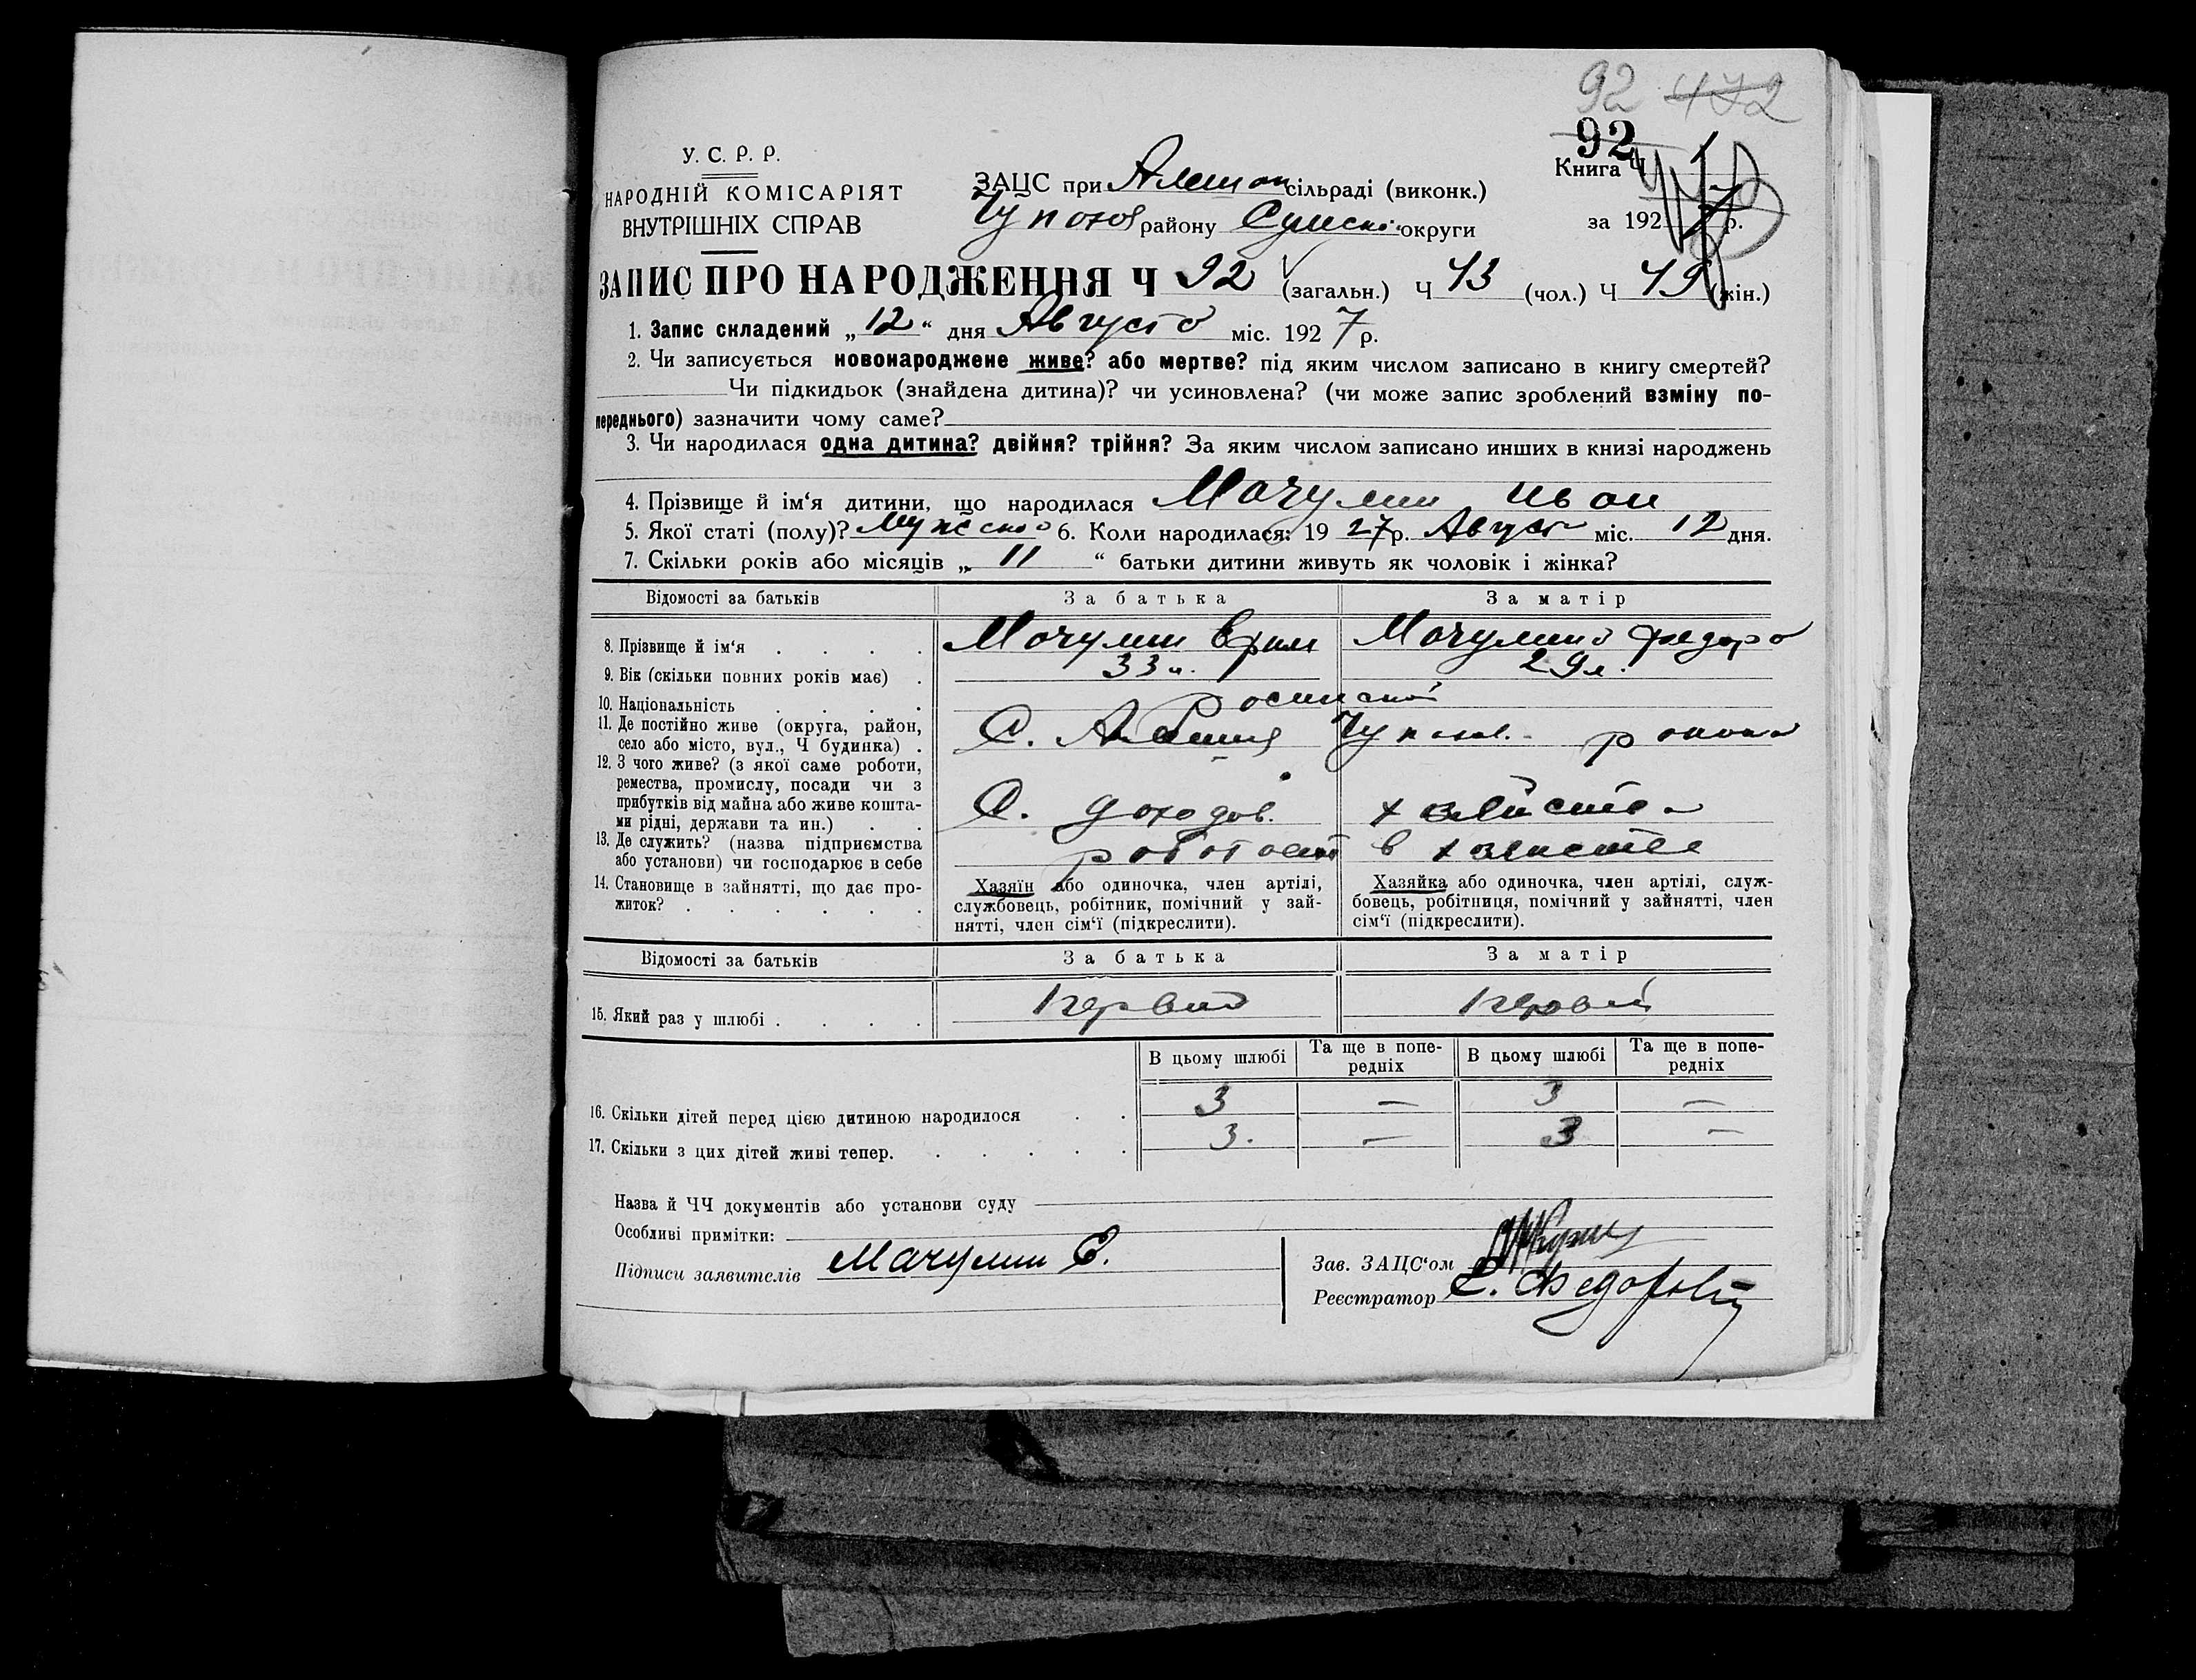 92 472
92
У. С. Р. Р.
НАРОДНІЙ КОМІСАРІЯТ
ВНУТРІШНІХ СПРАВ
ЗАЦС при Алешон сільраді (виконк.)
Чупахов району Сумской округи
Книга Ч 1
за 1927 р.
ЗАПИС ПРО НАРОДЖЕННЯ Ч 92 (загальн.) Ч 43 (чол.) Ч 49 (жін.)
1. Запис складений „12“ дня Августа міс. 1927 р.
2. Чи записується новонароджене живе? або мертве? під яким числом записано в книгу смертей?
Чи підкидьок (знайдена дитина)? чи усиновлена? (чи може запис зроблений взміну по-
переднього) зазначити чому саме?
3. Чи народилася одна дитина? двійня? трійня? За яким числом записано инших в книзі народжень
4. Прізвище й ім‘я дитини, що народилася Мачулин Иван
5. Якої статі (полу)? Мужско 6. Коли народилася: 1927 р. Август міс. 12 дня.
7. Скільки років або місяців „ 11 “ батьки дитини живуть як чоловік і жінка?
Відомості за батьків За батька За матір
8. Прізвище й ім‘я Мачулин Ефим Мачулина Федора
9. Вік (скільки повних років має) 33 л. 29 л.
10. Національність
11. Де постійно живе (округа, район, С. Алешня Чупахов. района
село або місто, вул., Ч будинка)
12. З чого живе? (з якої саме роботи,
ремества, промислу, посади чи з
прибутків від майна або живе кошта- С. доходов. хазяйства
ми рідні, держави та ин.)
13. Де служить? (назва підприємства работает в хазяистве
або установи) чи господарює в себе
14. Становище в зайнятті, що дає про-
житок?
Хазяїн або одиночка, член артілі,
службовець, робітник, помічний у зай-
нятті, член сім‘ї (підкреслити).
Хазяйка або одиночка, член артілі, служ-
бовець, робітниця, помічний у зайнятті, член
сім‘ї (підкреслити).
Відомості за батьків За батька За матір
15. Який раз у шлюбі первий первий
В цьому шлюбі Та ще в попе-
редніх В цьому шлюбі Та ще в попе-
редніх
16. Скільки дітей перед цією дитиною народилося 3 — 3 —
17. Скільки з цих дітей живі тепер. 3. — 3 —
Назва й ЧЧ документів або установи суду
Особливі примітки:
Підписи заявителів Мачулин Е.
Зав. ЗАЦС‘ом
Реєстратор Е. Федоров